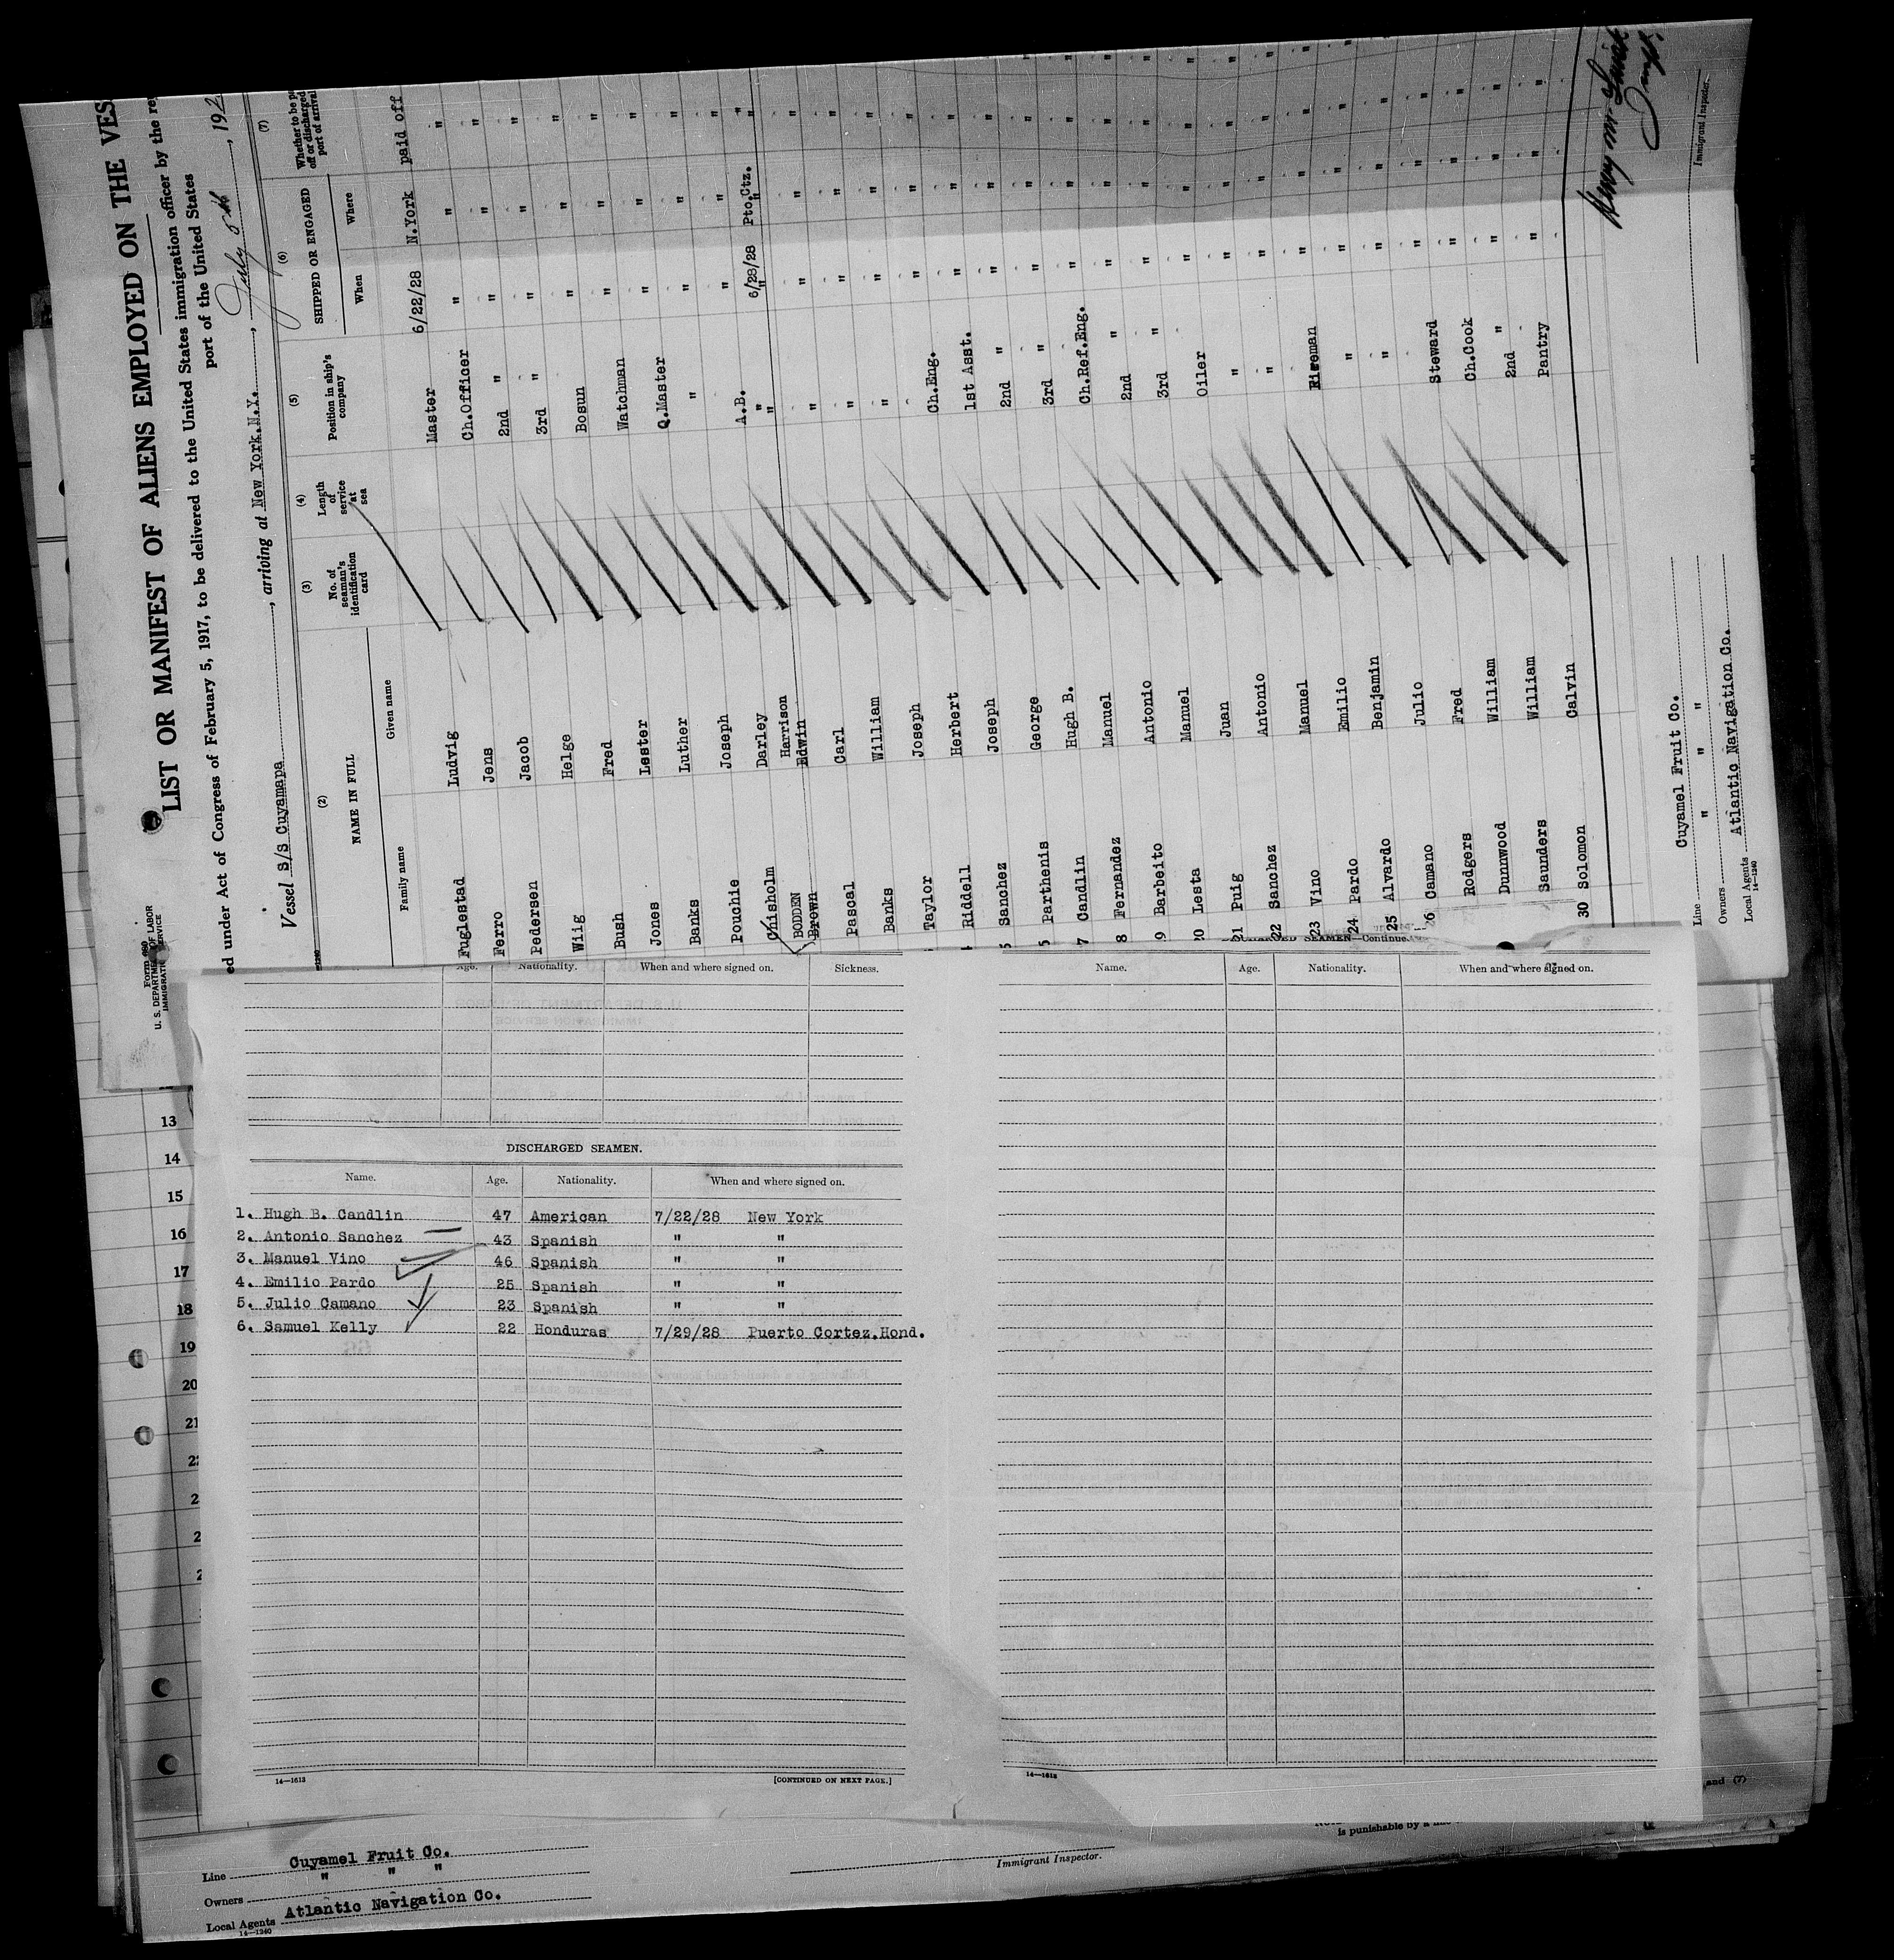 Form 680
U. S. DEPARTMENT OF LABOR
IMMIGRATION SERVICE
LIST OR MANIFEST OF ALIENS EMPLOYED ON THE VES
ed under Act of Congress of February 5, 1917, to be delivered to the United States immigration officer by the re
port of the United States
Vessel S/S Cuyamapa, arriving at New York.N.Y., July 5th, 192
(2) (3) (4) (5) (6) (7)
NAME IN FULL No. of seaman's identification card Length of service at sea Position in ship's company SHIPPED OR ENGAGED Whether to be p off or discharged port of arrival
Family name Given name When Where
Fuglestad Ludvig Master 6/22/28 N.York paid off
Ferro Jens Ch.Officer " " "
Pedersen Jacob 2nd " " " "
Wiig Helge 3rd " " " "
Bush Fred Bosun " " "
Jones Lester Watchman " " "
Banks Luther Q.Master " " "
Pouchie Joseph " " " "
Chisholm Darley A.B. " " "
BODDEN Harrison " 6/23/28 Pto.Ctz. "
Brown Edwin " " " "
Pascal Carl " " " "
Banks William " " " "
Taylor Joseph " " " "
Riddell Herbert Ch.Eng. " " "
5 Sanchez Joseph 1st Asst. " " "
Parthenis George 2nd " " " "
7 Candlin Hugh B. 3rd " " " "
8 Fernandez Manuel Ch.Ref.Eng. " " "
9 Barbeito Antonio 2nd " " " "
20 Lesta Manuel 3rd " " " "
21 Puig Juan Oiler " " "
22 Sanchez Antonio " " " "
23 Vino Manuel " " " "
24 Pardo Emilio Fireman " " "
25 Alvardo Benjamin " " " "
26 Camano Julio " " " "
Rodgers Fred Steward " " "
Dunnwood William Ch.Cook " " "
Saunders William 2nd " " " "
30 Solomon Calvin Pantry " " "
Line Cuyamel Fruit Co.
Owners " " "
Local Agents Atlantic Navigation Co.
14—1240
Immigrant Inspector.
Age. Nationality. When and where signed on. Sickness.
SEAMEN—Continue
Name. Age. Nationality. When and where signed on.
DISCHARGED SEAMEN.
Name. Age. Nationality. When and where signed on.
1. Hugh B. Candlin 47 American 7/22/28 New York
2. Antonio Sanchez 43 Spanish " "
3. Manuel Vino 46 Spanish " "
4. Emilio Pardo 25 Spanish " "
5. Julio Camano 23 Spanish " "
6. Samuel Kelly 22 Honduras 7/29/28 Puerto Cortez.Hond.
14—1613
[CONTINUED ON NEXT PAGE.]
14—1613
13
14
15
16
17
18
19
20
21
and (7)
is punishable by a
Line Cuyamel Fruit Co.
Owners " " "
Local Agents Atlantic Navigation Co.
14—1240
Immigrant Inspector.